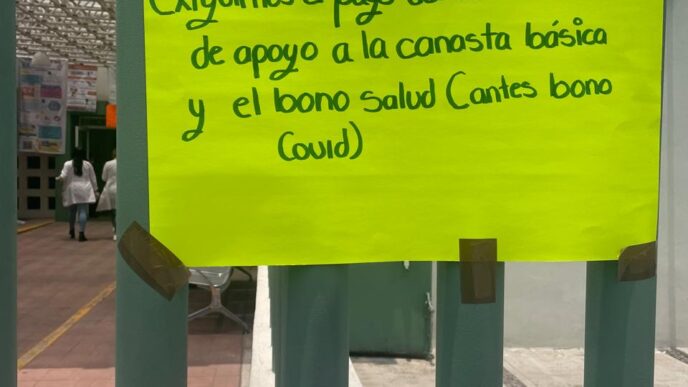 Exigimos el pago
de apoyo a la canasta básica
y el bono salud (antes bono
Covid)